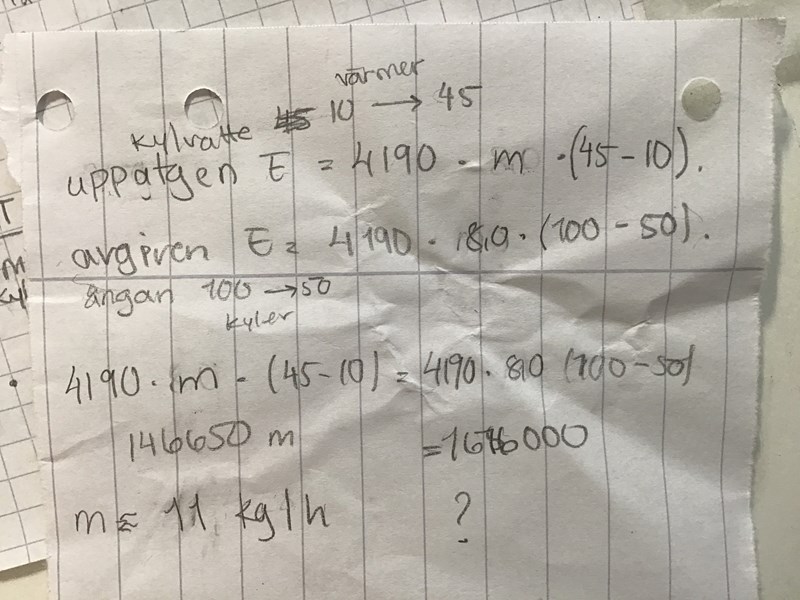 värmer
10 → 45
kylvatte
uppatgen E = 4190 · m · (45-10).
avgiven E = 4190 · 8,0 · (100-50).
ångan 100 → 50
kyler
4190 · m · (45-10) = 4190 · 8,0 (100-50)
146650 m = 1676000
m = 11 kg/h ?